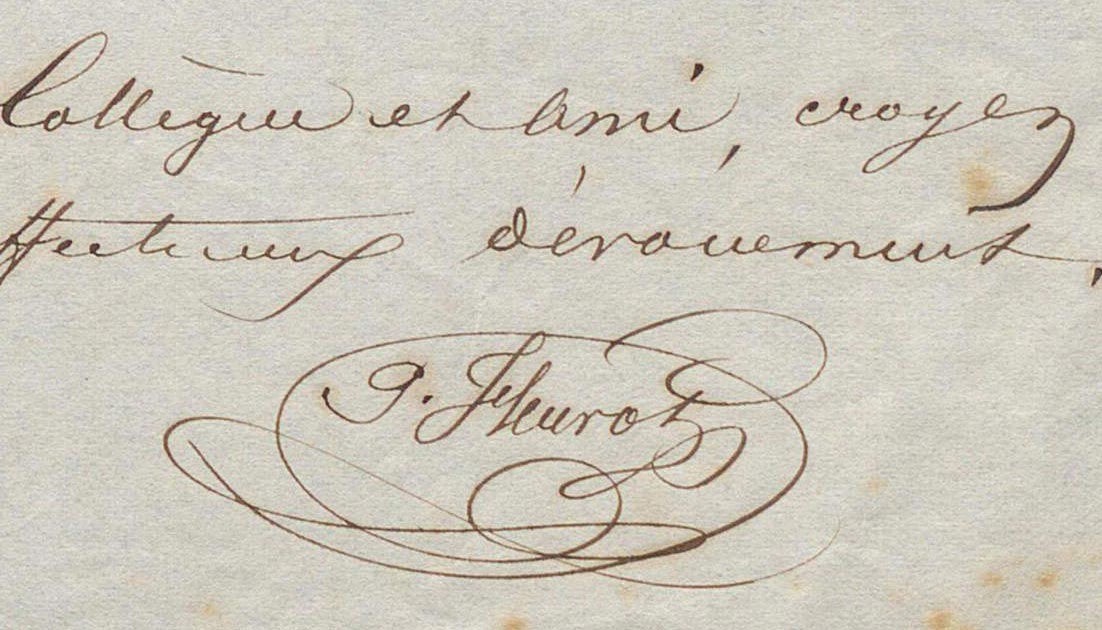 Collègue et ami, croyez
ffectueux dévouement.
P. Fleurot